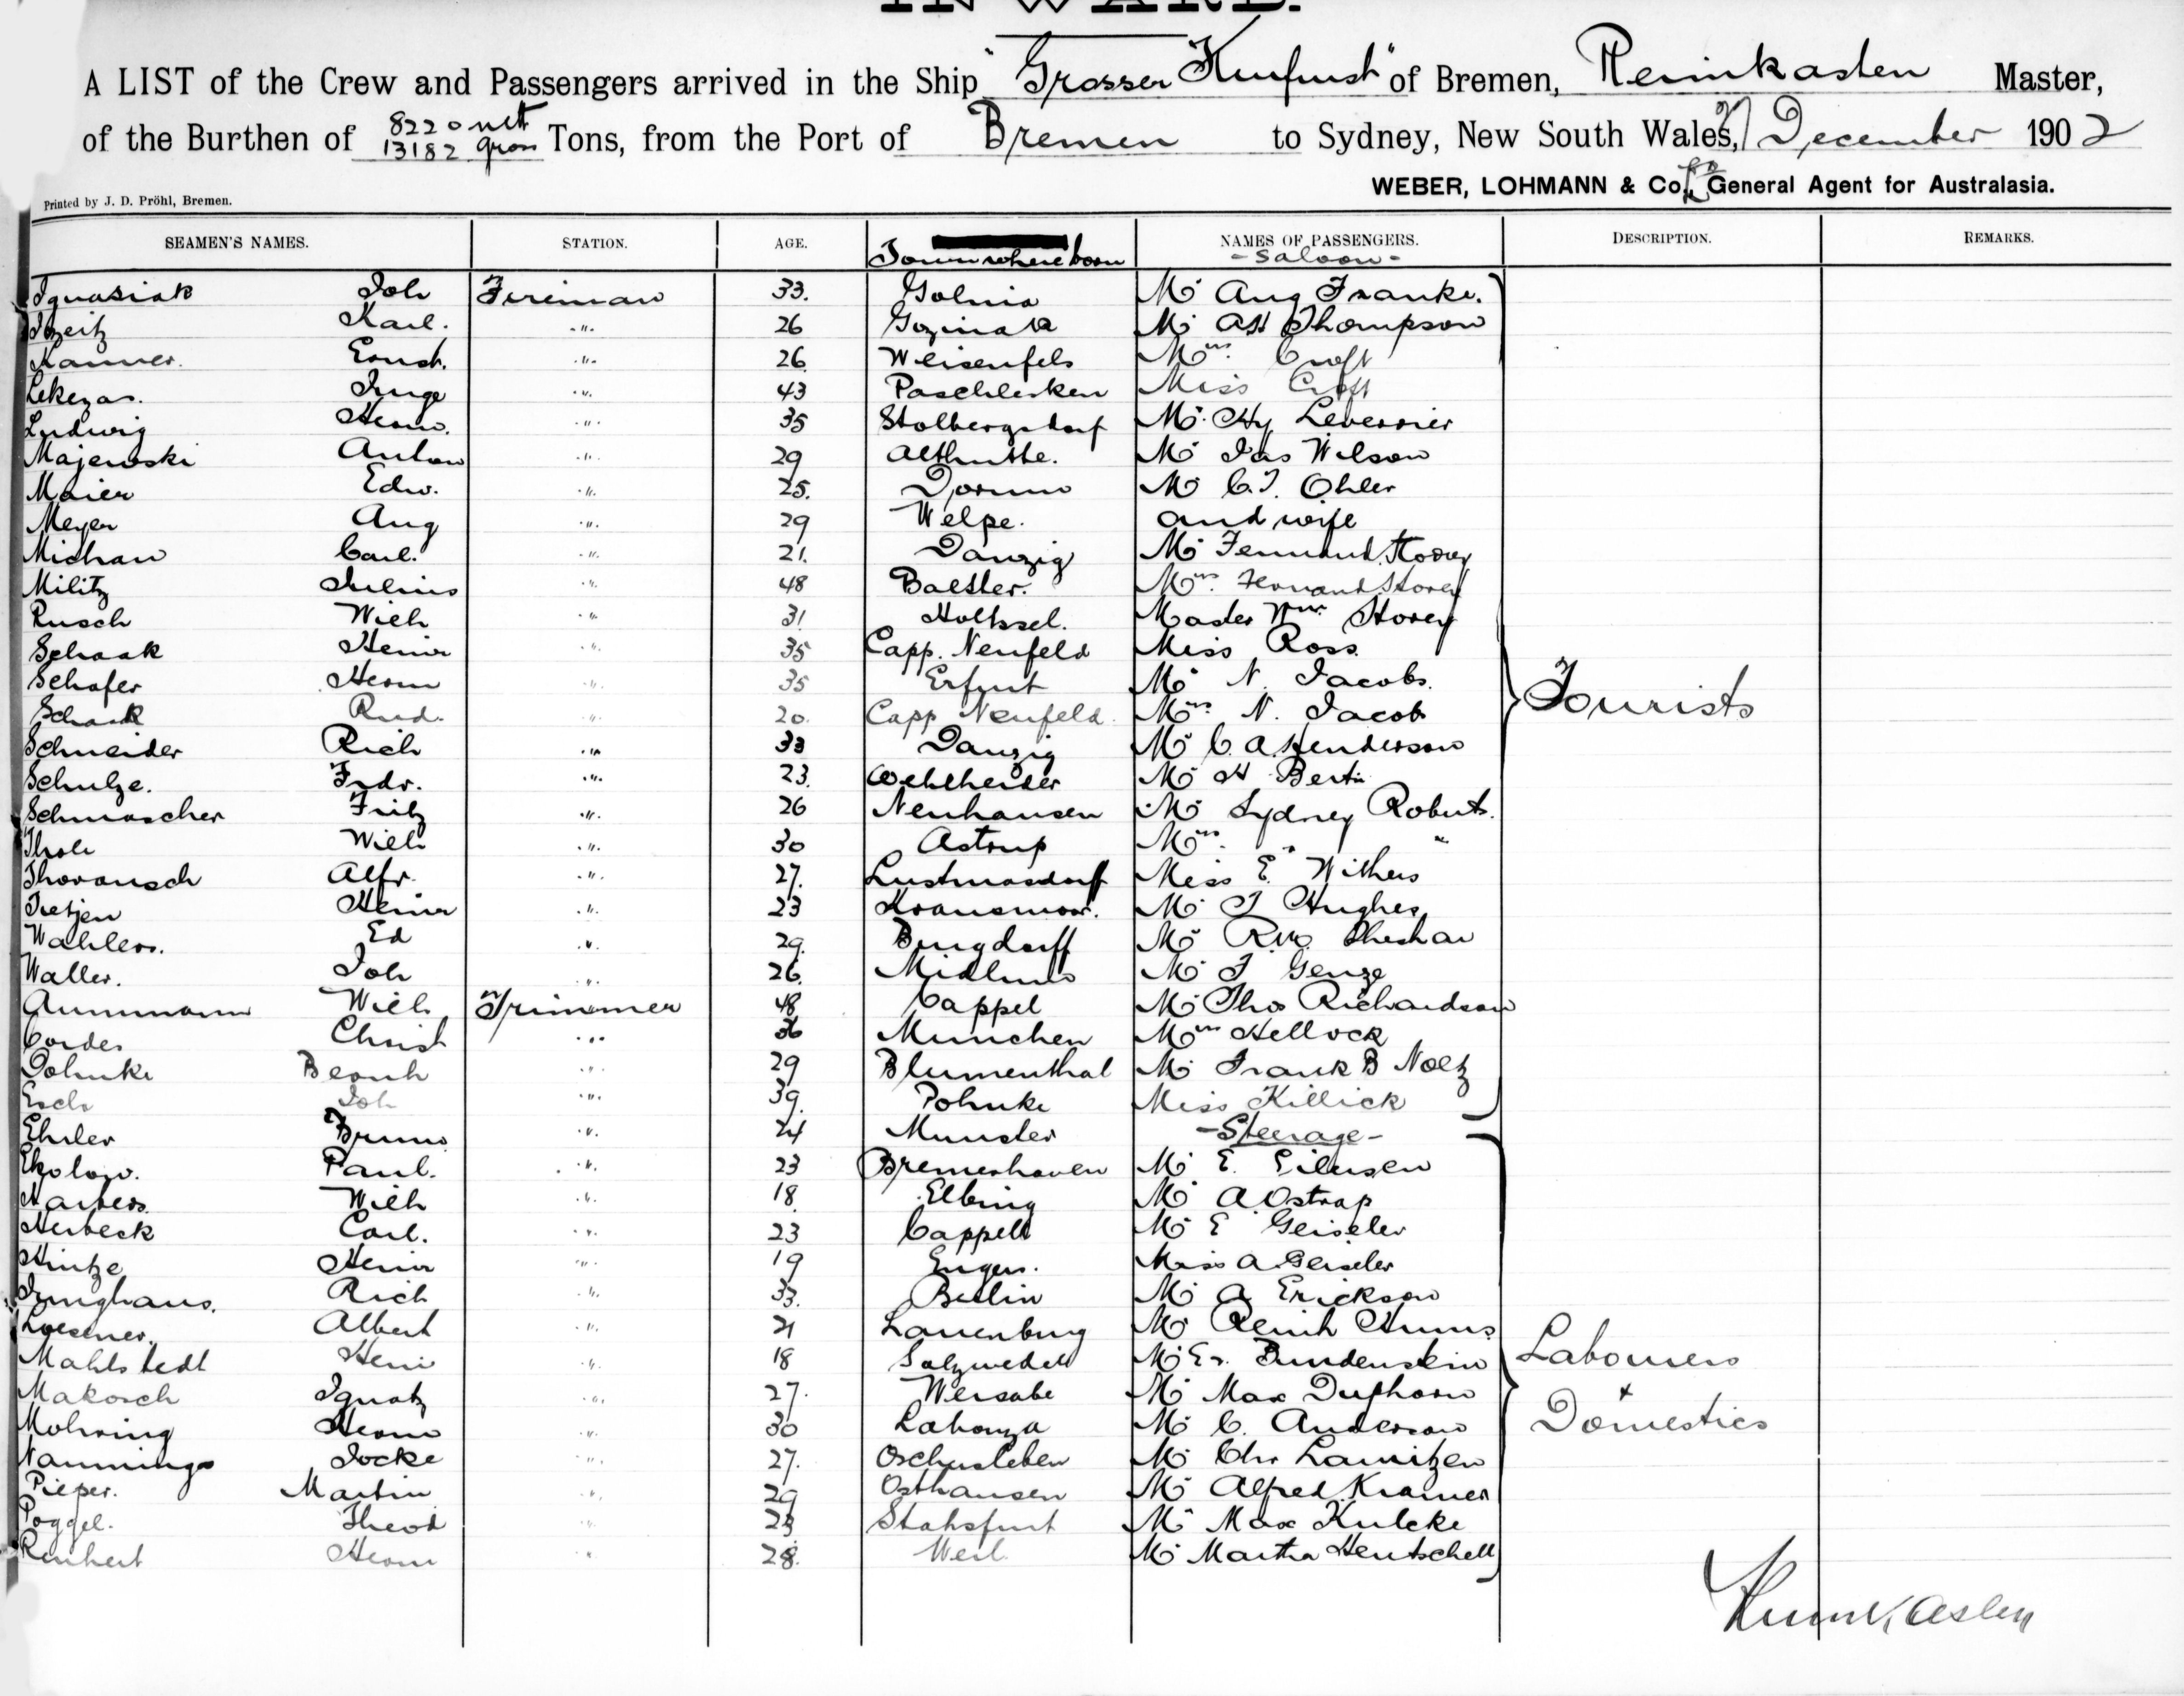 INWARD.
A LIST of the Crew and Passengers arrived in the Ship "Grosser Kurfurst" of Bremen, Reimkasten Master,
of the Burthen of 8220 nett 13182 gross Tons, from the Port of Bremen to Sydney, New South Wales, December 1902
WEBER, LOHMANN & Co., General Agent for Australasia.
Printed by J. D. Pröhl, Bremen.
SEAMEN'S NAMES. STATION. AGE. Town where born NAMES OF PASSENGERS. DESCRIPTION. REMARKS.
- Saloon -
Ignasiak Joh Fireman 33. Golnia Mr Aug Franke.
Karl. " 26 Mr AH Thompson
Kanner. Ernst. " 26 Weisenfels Mrs Croft
Lekezas. Inge " 43 Paschlesken Miss Croft
Ludwig Herm. " 35 Stolbergsdorf Mr Hy Leverrier
Majewski Anton " 29 Althutte. Mr Jas Wilson
Maier Edw. " 25. Dorum Mr C.T. Ohler
Meyer Aug " 29 Welpe. and wife
Michaw Carl. " 21. Danzig Mr Fernand Storey
Militz Julius " 48 Baesler. Mrs Fernand Storey
Rusch Wilh " 31 Holtssel. Master Wm Storey
Schaak Heinr " 35 Capp. Neufeld Miss Ross
Schafer Herm " 35 Erfurt Mr N. Jacobs.
Schaak Rud. " 20. Capp Neufeld. Mrs N. Jacob
Schneider Rich " 33 Danzig Mr C. A. Henderson
Schulze. Frdr. " 23. Wehlheider Mr H Bertu
Schmascher Fritz " 26 Neuhausen Mr Sydney Roberts.
Thole Wilh " 30 Astrup Mrs " "
Thoransch Alfr. " 27. Lustmasdorf Miss E. Withers
Tietjen Heinr " 23 Kransmoor. Mr J Hughes
Wahlers. Ed " 29. Burgdorff Mr
Waller. Joh " 26. Midlum Mr J Genge
Aummann Wilh Trimmer 48 Cappel Mr Thos Richardson
Cordes Christ " 36 Munchen Mrs Hellock
Dohnke Bernh " 29 Blumenthal Mr Frank B Noltz
Esch Joh " 39. Pohnke Miss Killick
Tourists
Ehrler Bruno " 24 Munster - Steerage -
Ekolow. Paul. " 23 Bremerhaven Mr E. Eilersen
Harbers Wilh " 18. Elbing Mr A Ostrap
Herbeck Carl. " 23 Cappell Mr E Geiseler
Hintze Heinr " 19 Engers. Miss A Geiseler
Junghans. Rich " 33. Berlin Mr A Erickson
Loesener. Albert " 21 Lauenburg Mr
Mahlstedt Heinr " 18 Salzwedell Mr
Makosch Ignatz " 27. Wersabe Mr Max Dufhorn
Mohring Herm " 30 Labonza Mr C. Anderson
Nannninga Jocke " 27. Oschersleben Mr Chr Lauritzen
Pieper. Martin " 29 Osthausen Mr Alfred Kramer
Poggel. Theod " 23 Stahsfurt Mr Max Kulcke
Reinhert Herm " 28. Werl Mr Martha Hentschell
Labourers
+
Domestics
Reimkasten